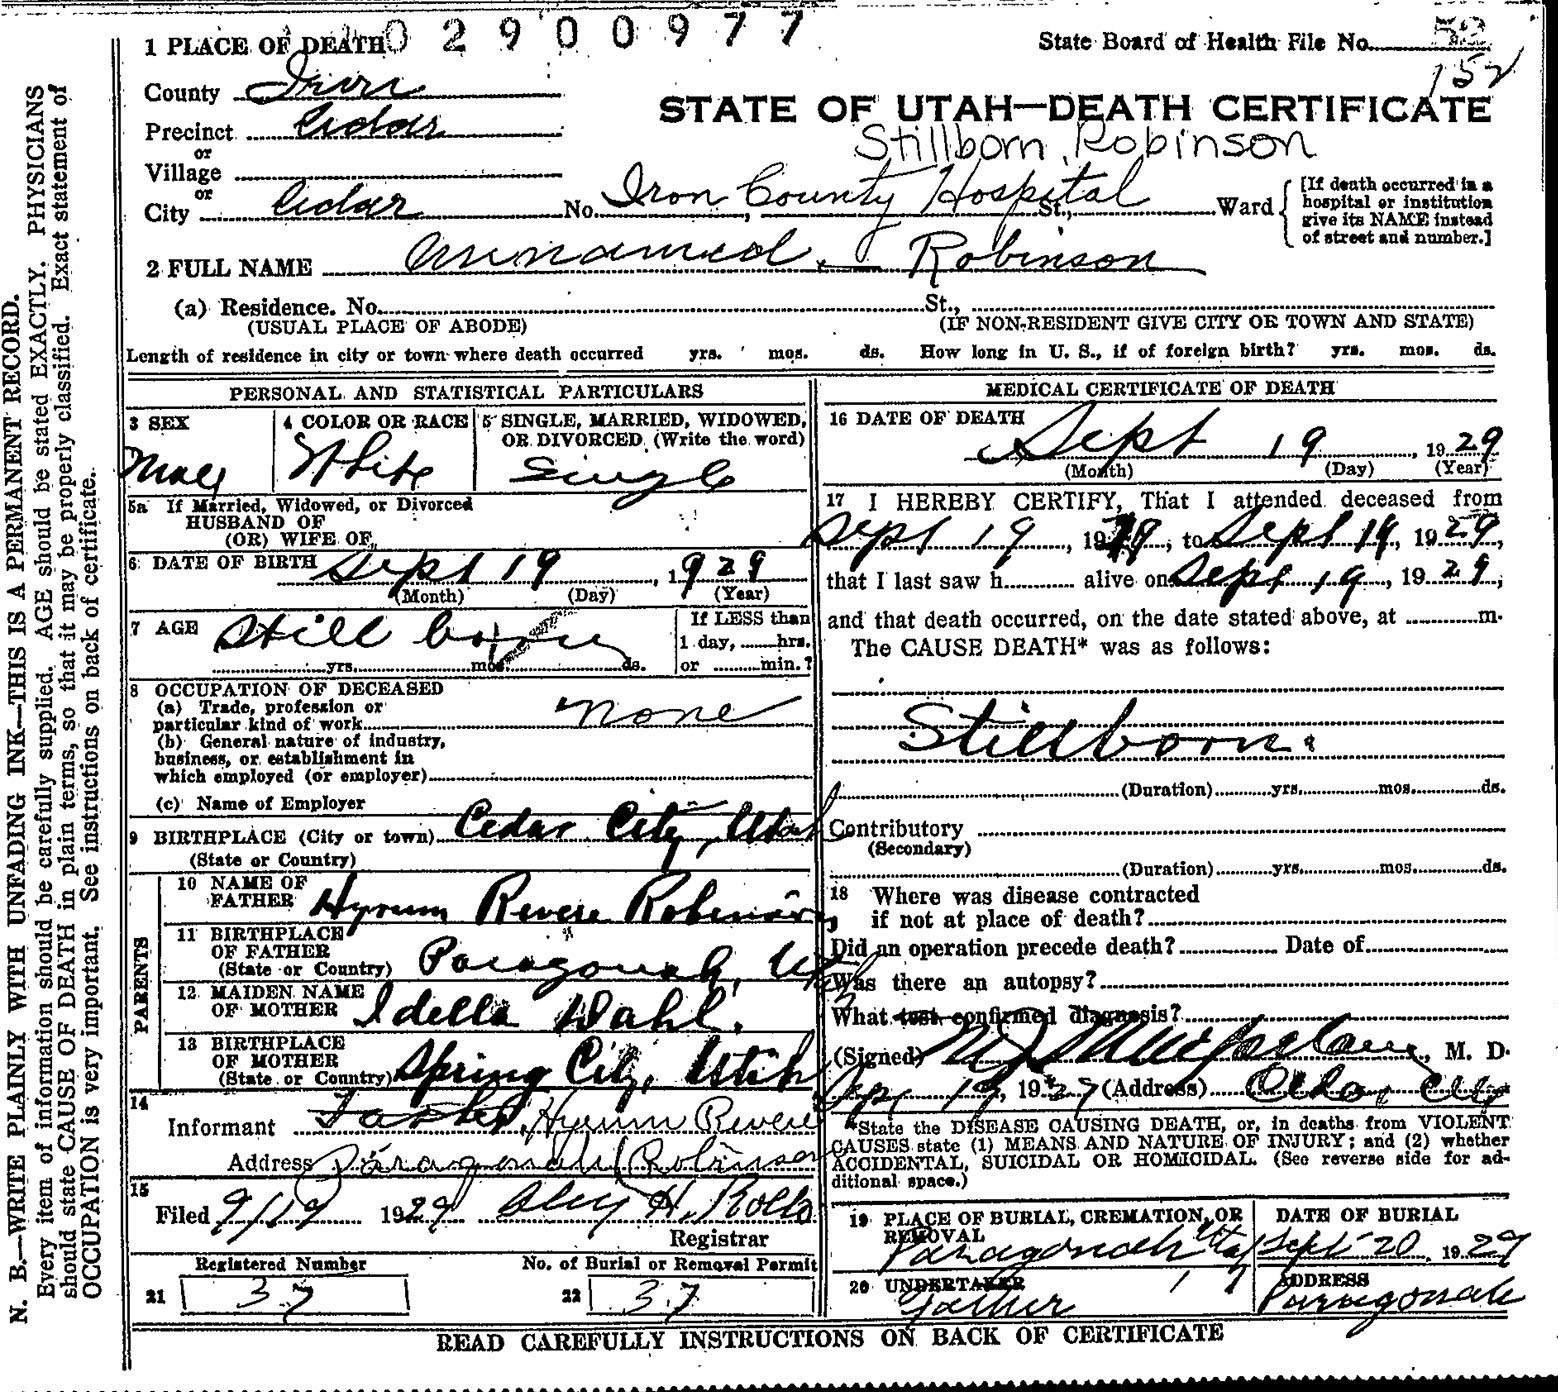 02900977
1 PLACE OF DEATH
State Board of Health File No. 52
152
County Iron
STATE OF UTAH—DEATH CERTIFICATE
Precinct Cedar
Stillborn Robinson
or
Village
or
City Cedar No. Iron County Hospital St., Ward
[If death occurred in a
hospital or institution
give its NAME instead
of street and number.]
2 FULL NAME unnamed Robinson
(a) Residence. No. St.,
(USUAL PLACE OF ABODE) (IF NON-RESIDENT GIVE CITY OR TOWN AND STATE)
Length of residence in city or town where death occurred yrs. mos. ds. How long in U. S., if of foreign birth? yrs. mos. ds.
PERSONAL AND STATISTICAL PARTICULARS
3 SEX
Male
4 COLOR OR RACE
White
5 SINGLE, MARRIED, WIDOWED,
OR DIVORCED (Write the word)
Single
5a If Married, Widowed, or Divorced
HUSBAND OF
(OR) WIFE OF
6 DATE OF BIRTH Sept 19, 1929
(Month) (Day) (Year)
7 AGE Still born
yrs. mos. ds.
If LESS than
1 day, hrs.
or min.?
8 OCCUPATION OF DECEASED
(a) Trade, profession or
particular kind of work none
(b) General nature of industry,
business, or establishment in
which employed (or employer)
(c) Name of Employer
9 BIRTHPLACE (City or town) Cedar City, Utah
(State or Country)
PARENTS
10 NAME OF
FATHER Hyrum Revere Robinson
11 BIRTHPLACE
OF FATHER
(State or Country) Paragonah, Utah
12 MAIDEN NAME
OF MOTHER Idella Dahl.
13 BIRTHPLACE
OF MOTHER
(State or Country) Spring City, Utah
14
Informant Father, Hyrum Revere
Address Paragonah Robinson
15
Filed 9/19 1929 H. Rollo
Registrar
Registered Number
21 37
No. of Burial or Removal Permit
22 37
MEDICAL CERTIFICATE OF DEATH
16 DATE OF DEATH
Sept 19, 1929
(Month) (Day) (Year)
17 I HEREBY CERTIFY, That I attended deceased from
Sept 19, 1929, to Sept 19, 1929,
that I last saw h alive on Sept 19, 1929,
and that death occurred, on the date stated above, at m.
The CAUSE DEATH* was as follows:
Stillborn.
(Duration) yrs. mos. ds.
Contributory
(Secondary)
(Duration) yrs. mos. ds.
18 Where was disease contracted
if not at place of death?
Did an operation precede death? Date of
Was there an autopsy?
What test confirmed diagnosis?
(Signed) M J Macfarlane, M. D.
Sep 19, 1929 (Address) Cedar City
*State the DISEASE CAUSING DEATH, or, in deaths from VIOLENT
CAUSES state (1) MEANS AND NATURE OF INJURY; and (2) whether
ACCIDENTAL, SUICIDAL OR HOMICIDAL. (See reverse side for ad-
ditional space.)
19 PLACE OF BURIAL, CREMATION, OR
REMOVAL
Paragonah Utah
DATE OF BURIAL
Sept 20, 1929
20 UNDERTAKER
Father
ADDRESS
Paragonah
READ CAREFULLY INSTRUCTIONS ON BACK OF CERTIFICATE
N. B.—WRITE PLAINLY WITH UNFADING INK—THIS IS A PERMANENT RECORD.
Every item of information should be carefully supplied. AGE should be stated EXACTLY. PHYSICIANS
should state CAUSE OF DEATH in plain terms, so that it may be properly classified. Exact statement of
OCCUPATION is very important. See instructions on back of certificate.